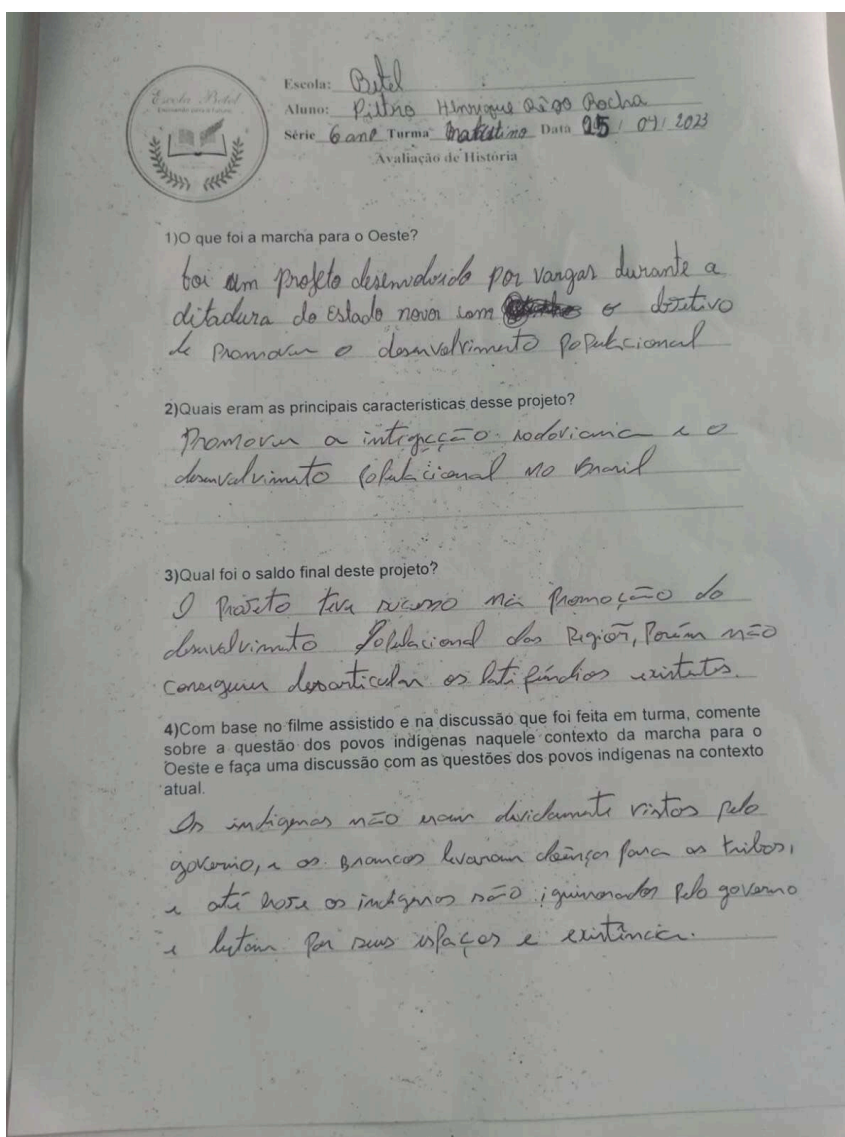 Escola Betel
Escola: Betel
Aluno: Pietro Henrique Rêgo Rocha
Série 6 ano Turma Matutino Data 25 / 04 / 2023
Avaliação de História
1)O que foi a marcha para o Oeste?
foi um projeto desenvolvido por vargas durante a
ditadura do Estado novo com o objetivo
de promover o desenvolvimento Populacional
2)Quais eram as principais características desse projeto?
Promover a integração rodoviaria e o
desenvolvimento Populacional no Brasil
3)Qual foi o saldo final deste projeto?
O Projeto teve sucesso na promoção do
desenvolvimento Populacional das Região, Porém não
conseguiu desarticular os latifúndios existentes.
4)Com base no filme assistido e na discussão que foi feita em turma, comente
sobre a questão dos povos indígenas naquele contexto da marcha para o
Oeste e faça uma discussão com as questões dos povos indígenas na contexto
atual.
Os indigenas não eram dividamente vistos pelo
governo, e os Brancos levaram doenças para as tribos,
e até hoje os indigenas são iguinorados pelo governo
e lutam por seus espaços e existência.